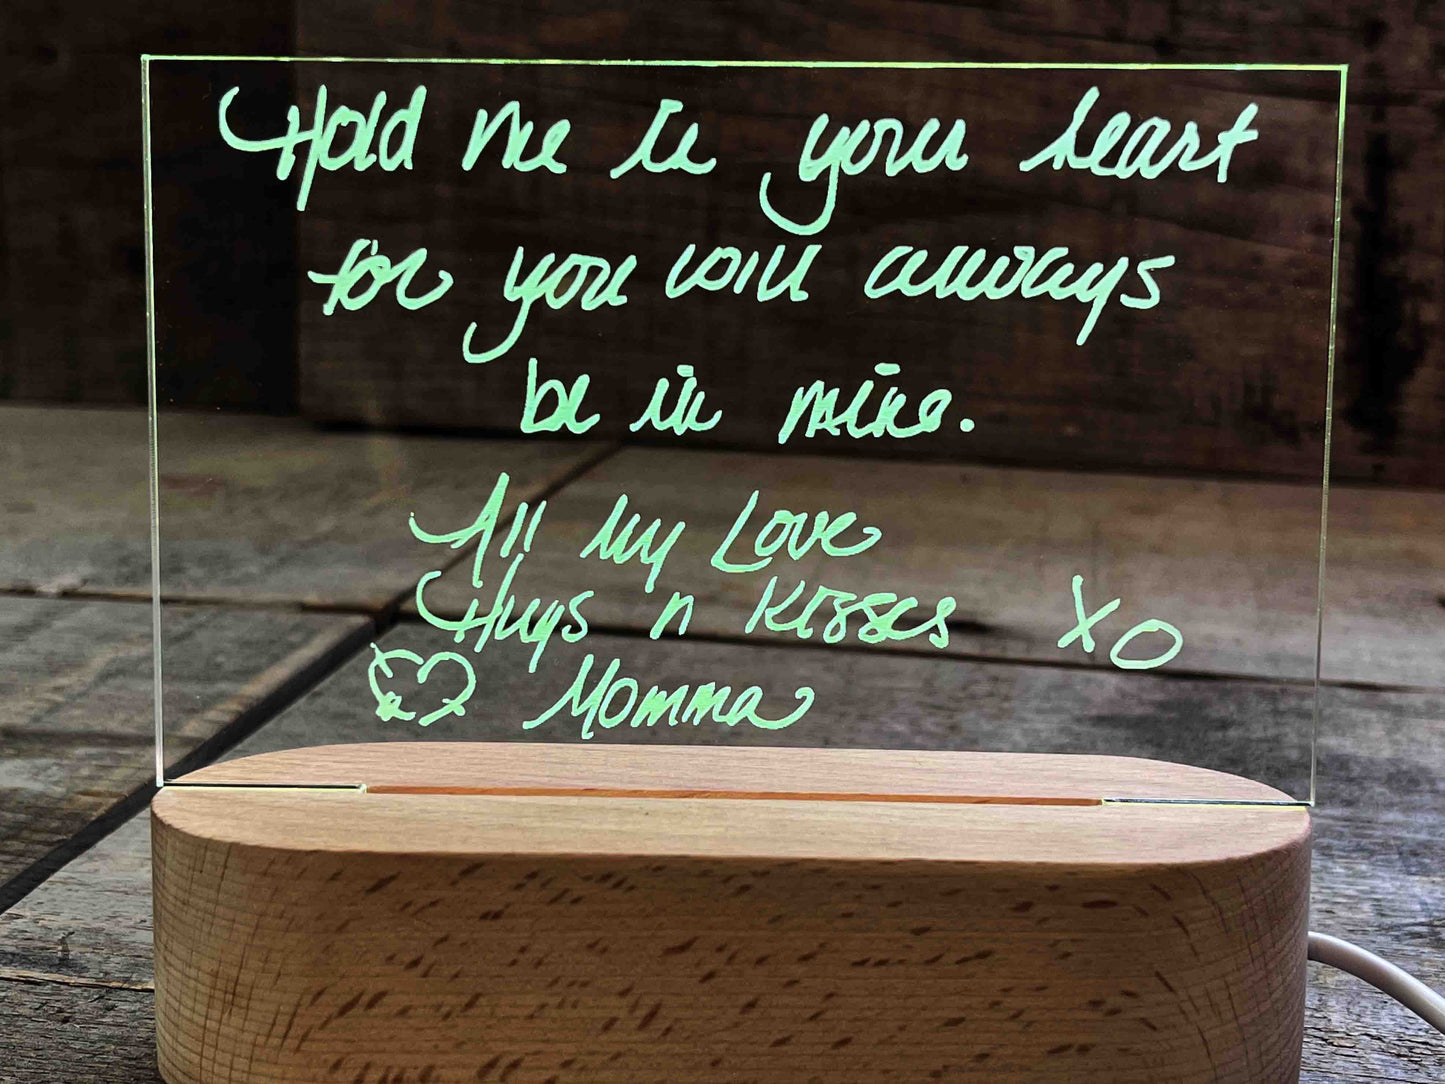 Hold me in your heart
for you will always
be in mine.
All my Love
Hugs n Kisses XO
Momma